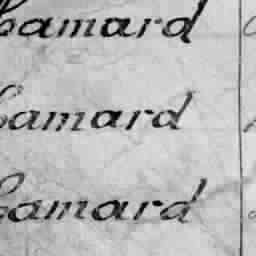 Camard
Camard
Camard